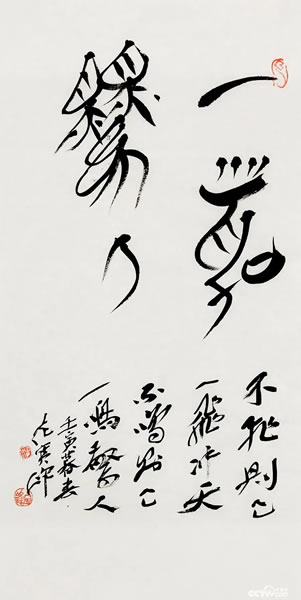 一鳴
驚人
不飛則已
一飛沖天
不鳴則已
一鳴驚人
壬寅暮春
CCTV.com